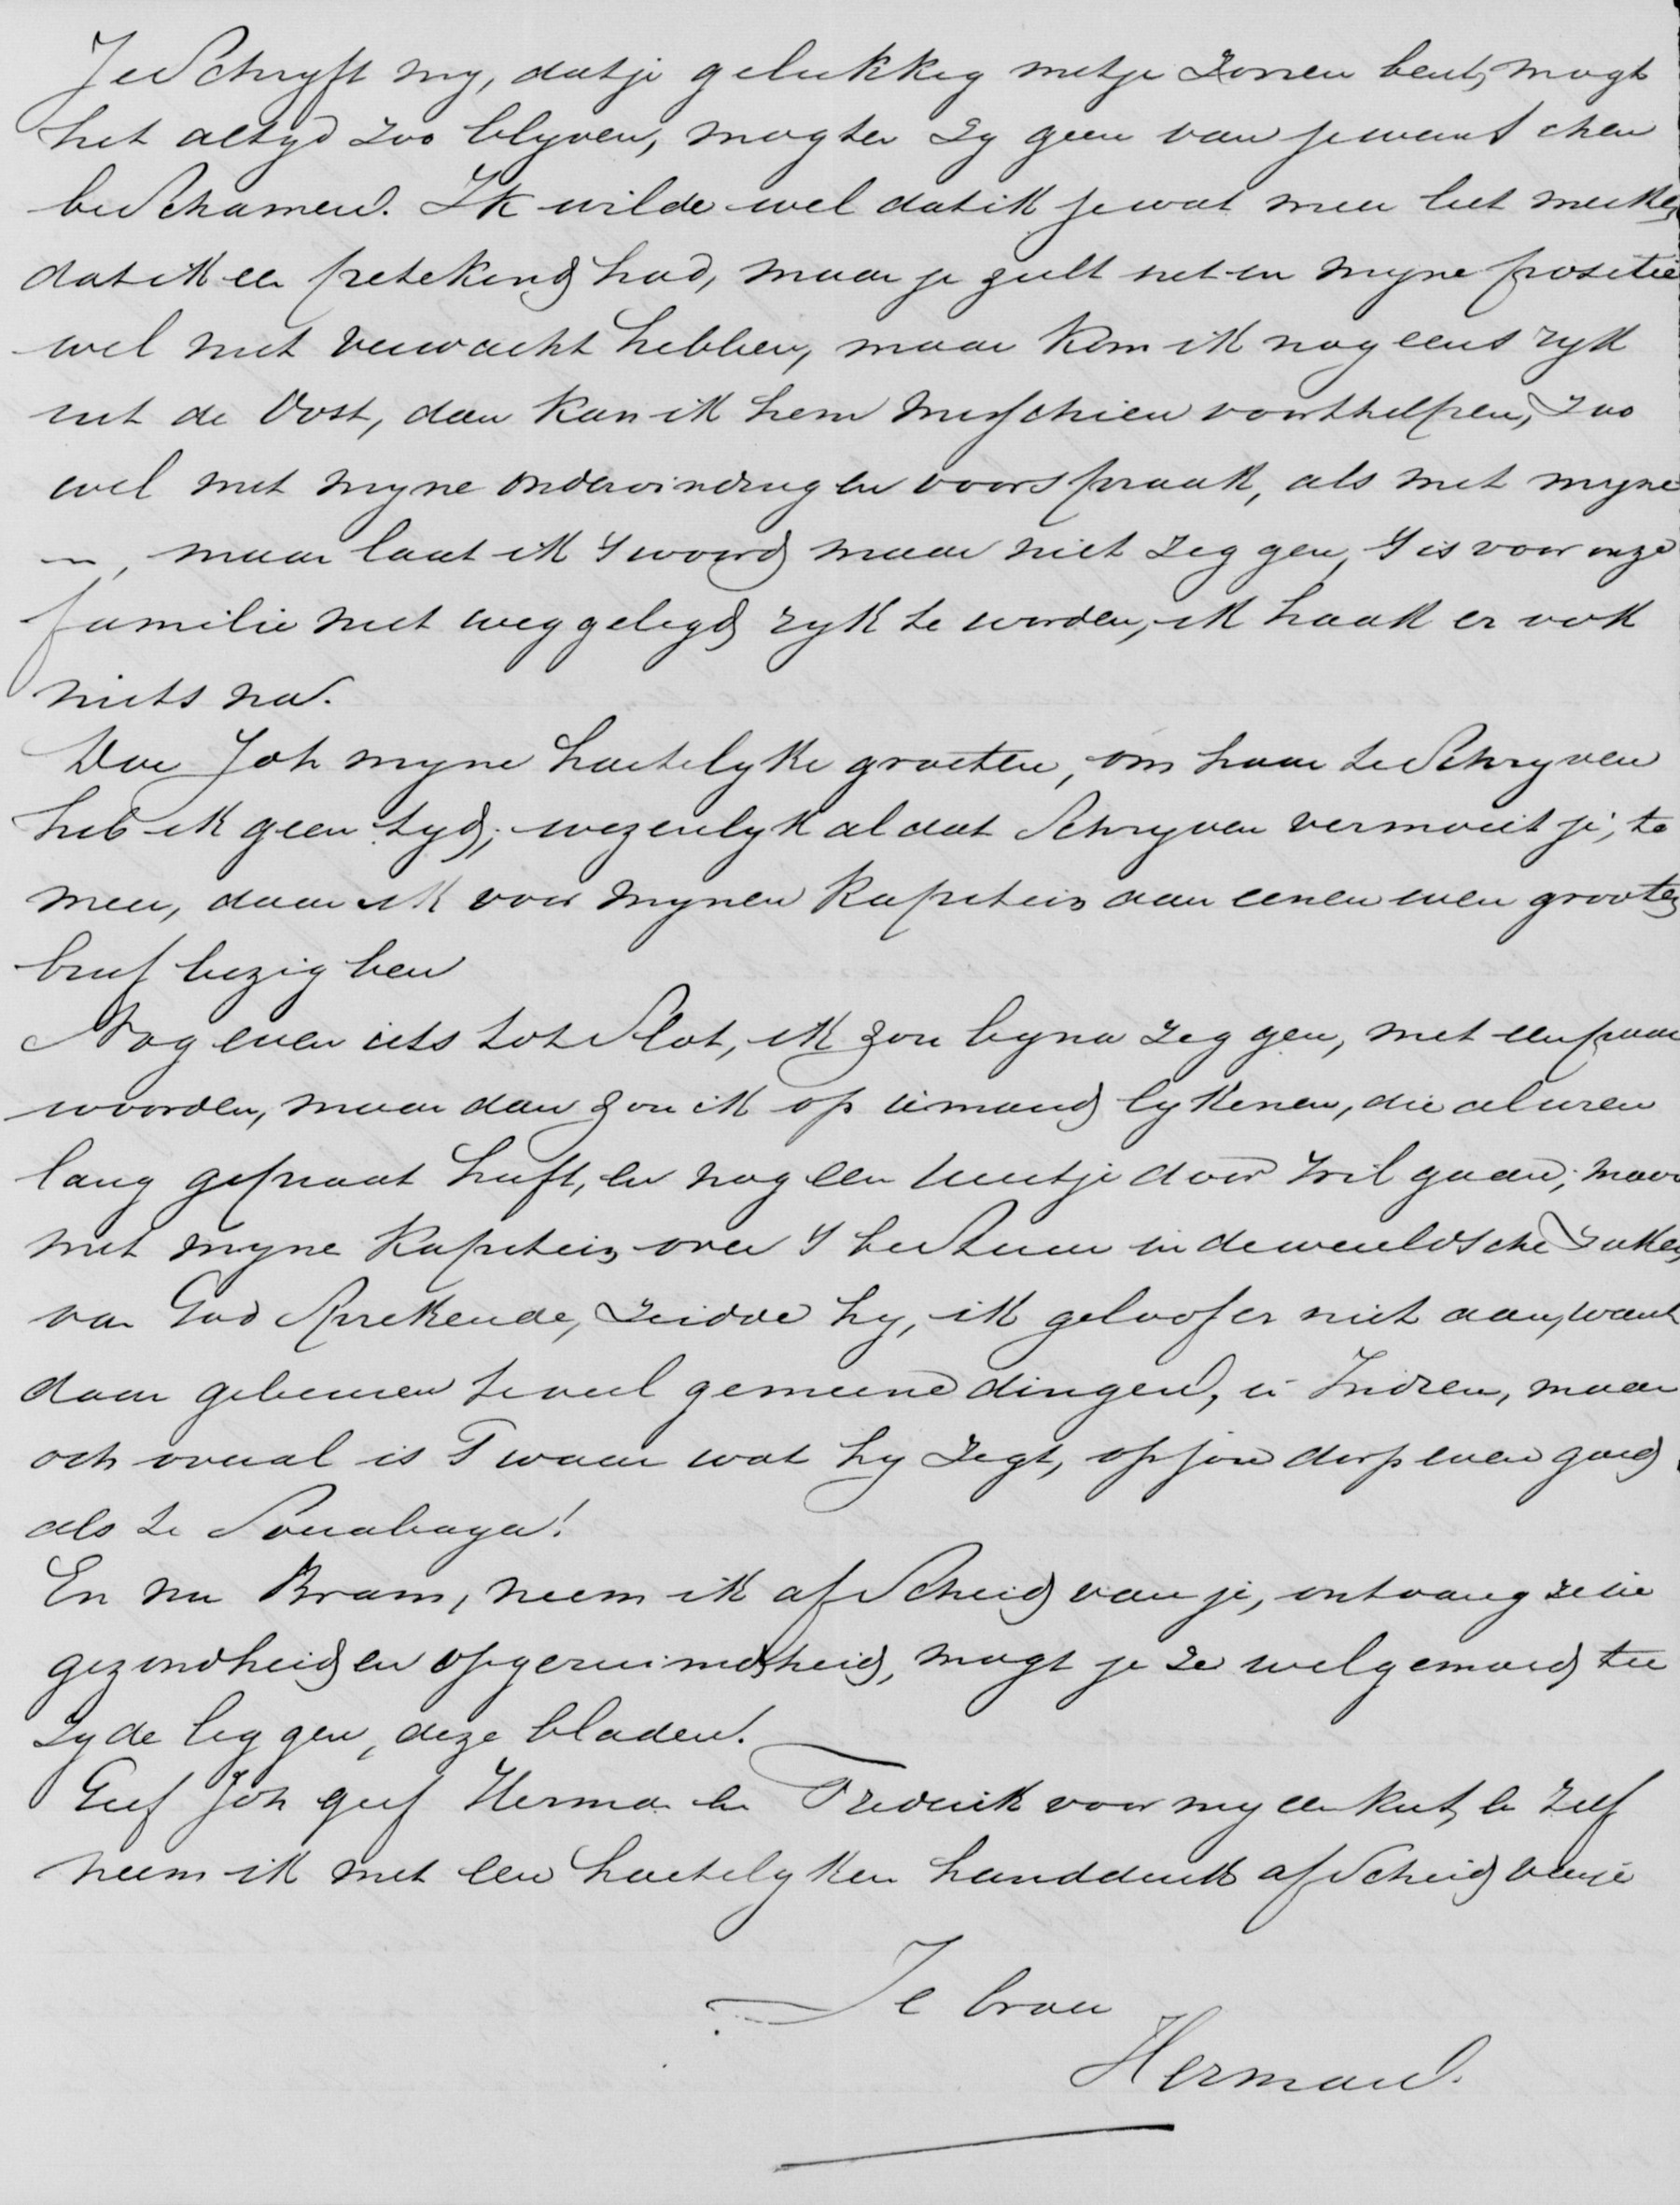 Je schryft my, dat je gelukkig met je zonen bent, mogt
het altyd zoo blyven, mogten zy geen van je wenschen
beschamen. Ik wilde wel dat ik je wat meer liet merken
dat ik een petekind had, maar je zult het in myne positie
wel niet verwacht hebben, maar kom ik nog eens ryk
uit de Oost, dan kan ik hem misschien voorthelpen, zoo
wel met myne ondervinding en voorspraak, als met myne
—, maar laat ik 't woord maar niet zeggen, 't is voor onze
familie niet weggelegd ryk te worden, ik haak er ook
niets na.
Doe Joh myne hartelyke groeten, om haar te schryven
heb ik geen tyd; wezenlyk al dat schryven vermoeit je, te
meer, daar ik voor mynen Kapitein aan eenen even grooten
brief bezig ben
Nog even iets tot slot, ik zou byna zeggen, met een paar
woorden, maar dan zou ik op iemand lykenen, die al uren
lang gepraat heeft, en nog een uurtje door wil gaan; maar
met myne Kapitein over 't bestuur in de wereldsche zaken
van God sprekende, zeidde hy, ik geloof er niet aan, want
daar gebeuren te veel gemeene dingen, in Indien, maar
och overal is 't waar wat hy zegt, op jou dorp even goed
als te Sourabaya!
En nu Bram, neem ik afscheid van je, ontvang ze in
gezondheid en opgeruimdheid, mogt je ze welgemoed ter
zyde leggen, deze bladen.
Geef Joh geef Herman en Frederik voor my een kus, en zelf
neem ik met een hartelyken handdruk afscheid van je
Je broer
Herman.